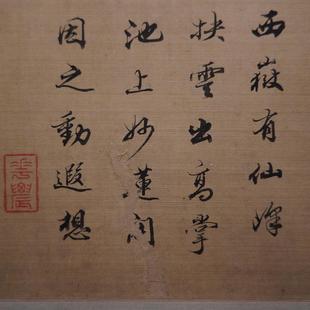 西嶽有仙峰
扶雲出高掌
池上妙蓮開
因之動遐想